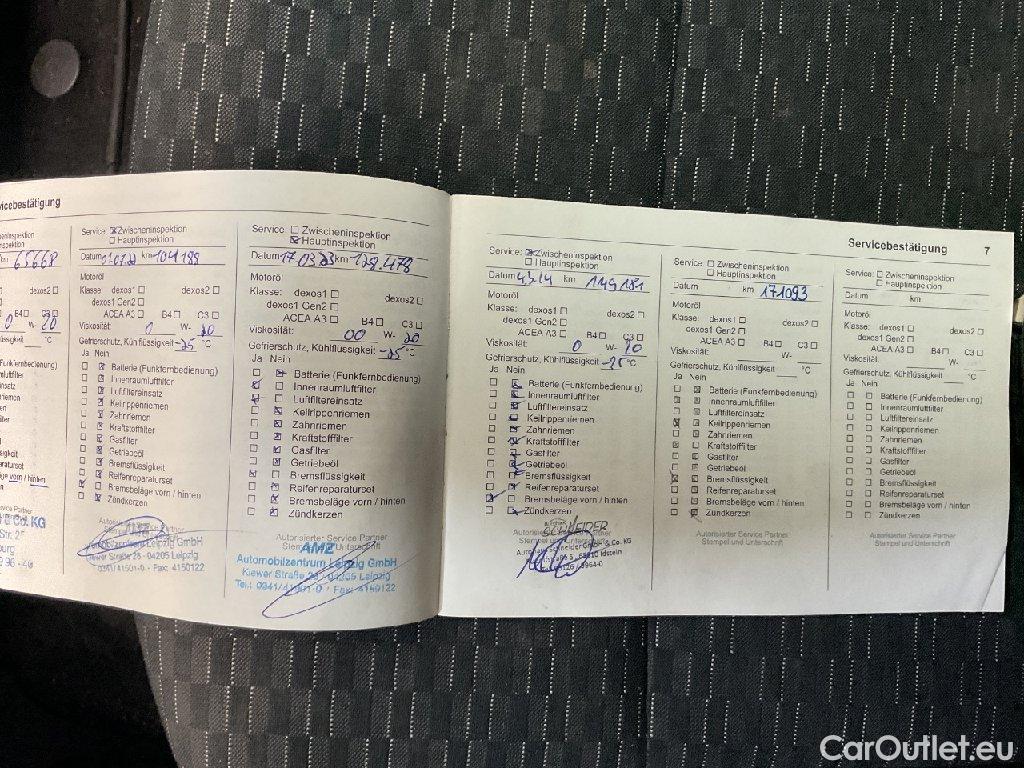 Servicebestätigung
65668
dexos2
C3
20
°C
Service: Zwischeninspektion
Hauptinspektion
Datum km 104199
Motoröl
Klasse: dexos1 dexos2
dexos1 Gen2
ACEA A3 B4 C3
Viskosität: 0 W- 20
Gefrierschutz, Kühlflüssigkeit -25 °C
Ja Nein
Batterie (Funkfernbedienung)
Innenraumluftfilter
Luftfiltereinsatz
Keilrippenriemen
Zahnriemen
Kraftstofffilter
Gasfilter
Getriebeöl
Bremsflüssigkeit
Reifenreparaturset
Bremsbeläge vorn / hinten
Zündkerzen
Automobilzentrum Leipzig GmbH
Kiewer Straße 28 - 04205 Leipzig
0941/41501-0 · Fax: 4150122
Service: Zwischeninspektion
Hauptinspektion
Datum 17.03.23 km 128.478
Motoröl
Klasse: dexos1 dexos2
dexos1 Gen2
ACEA A3 B4 C3
Viskosität: 00 W- 20
Gefrierschutz, Kühlflüssigkeit -25 °C
Ja Nein
Batterie (Funkfernbedienung)
Innenraumluftfilter
Luftfiltereinsatz
Keilrippenriemen
Zahnriemen
Kraftstofffilter
Gasfilter
Getriebeöl
Bremsflüssigkeit
Reifenreparaturset
Bremsbeläge vorn / hinten
Zündkerzen
Autorisierter Service Partner
Stempel und Unterschrift
AMZ
Automobilzentrum Leipzig GmbH
Kiewer Straße 28 - 04205 Leipzig
Tel.: 0941/41501-0 · Fax: 4150122
Servicebestätigung 7
Service: Zwischeninspektion
Hauptinspektion
Datum km 149181
Motoröl
Klasse: dexos1 dexos2
dexos1 Gen2
ACEA A3 B4 C3
Viskosität: 0 W- 20
Gefrierschutz, Kühlflüssigkeit -25 °C
Ja Nein
Batterie (Funkfernbedienung)
Innenraumluftfilter
Luftfiltereinsatz
Keilrippenriemen
Zahnriemen
Kraftstofffilter
Gasfilter
Getriebeöl
Bremsflüssigkeit
Reifenreparaturset
Bremsbeläge vorn / hinten
Zündkerzen
SCHNEIDER
Autorisierter Service Partner
Stempel und Unterschrift
Service: Zwischeninspektion
Hauptinspektion
Datum km 171093
Motoröl
Klasse: dexos1 dexos2
dexos1 Gen2
ACEA A3 B4 C3
Viskosität: W-
Gefrierschutz, Kühlflüssigkeit °C
Ja Nein
Batterie (Funkfernbedienung)
Innenraumluftfilter
Luftfiltereinsatz
Keilrippenriemen
Zahnriemen
Kraftstofffilter
Gasfilter
Getriebeöl
Bremsflüssigkeit
Reifenreparaturset
Bremsbeläge vorn / hinten
Zündkerzen
Autorisierter Service Partner
Stempel und Unterschrift
Service: Zwischeninspektion
Hauptinspektion
Datum km
Motoröl
Klasse: dexos1 dexos2
dexos1 Gen2
ACEA A3 B4 C3
Viskosität: W-
Gefrierschutz, Kühlflüssigkeit °C
Ja Nein
Batterie (Funkfernbedienung)
Innenraumluftfilter
Luftfiltereinsatz
Keilrippenriemen
Zahnriemen
Kraftstofffilter
Gasfilter
Getriebeöl
Bremsflüssigkeit
Reifenreparaturset
Bremsbeläge vorn / hinten
Zündkerzen
Autorisierter Service Partner
Stempel und Unterschrift
CarOutlet.eu